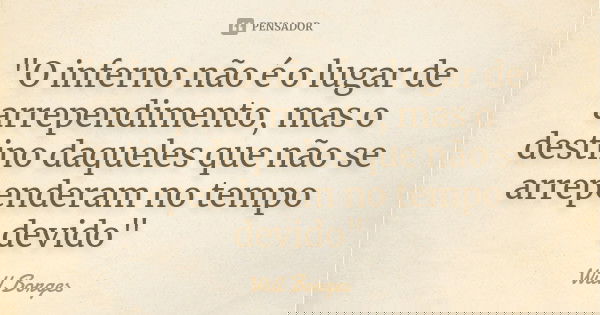 PENSADOR
"O inferno não é o lugar de
arrependimento, mas o
destino daqueles que não se
arrependeram no tempo
devido"
Will Borges